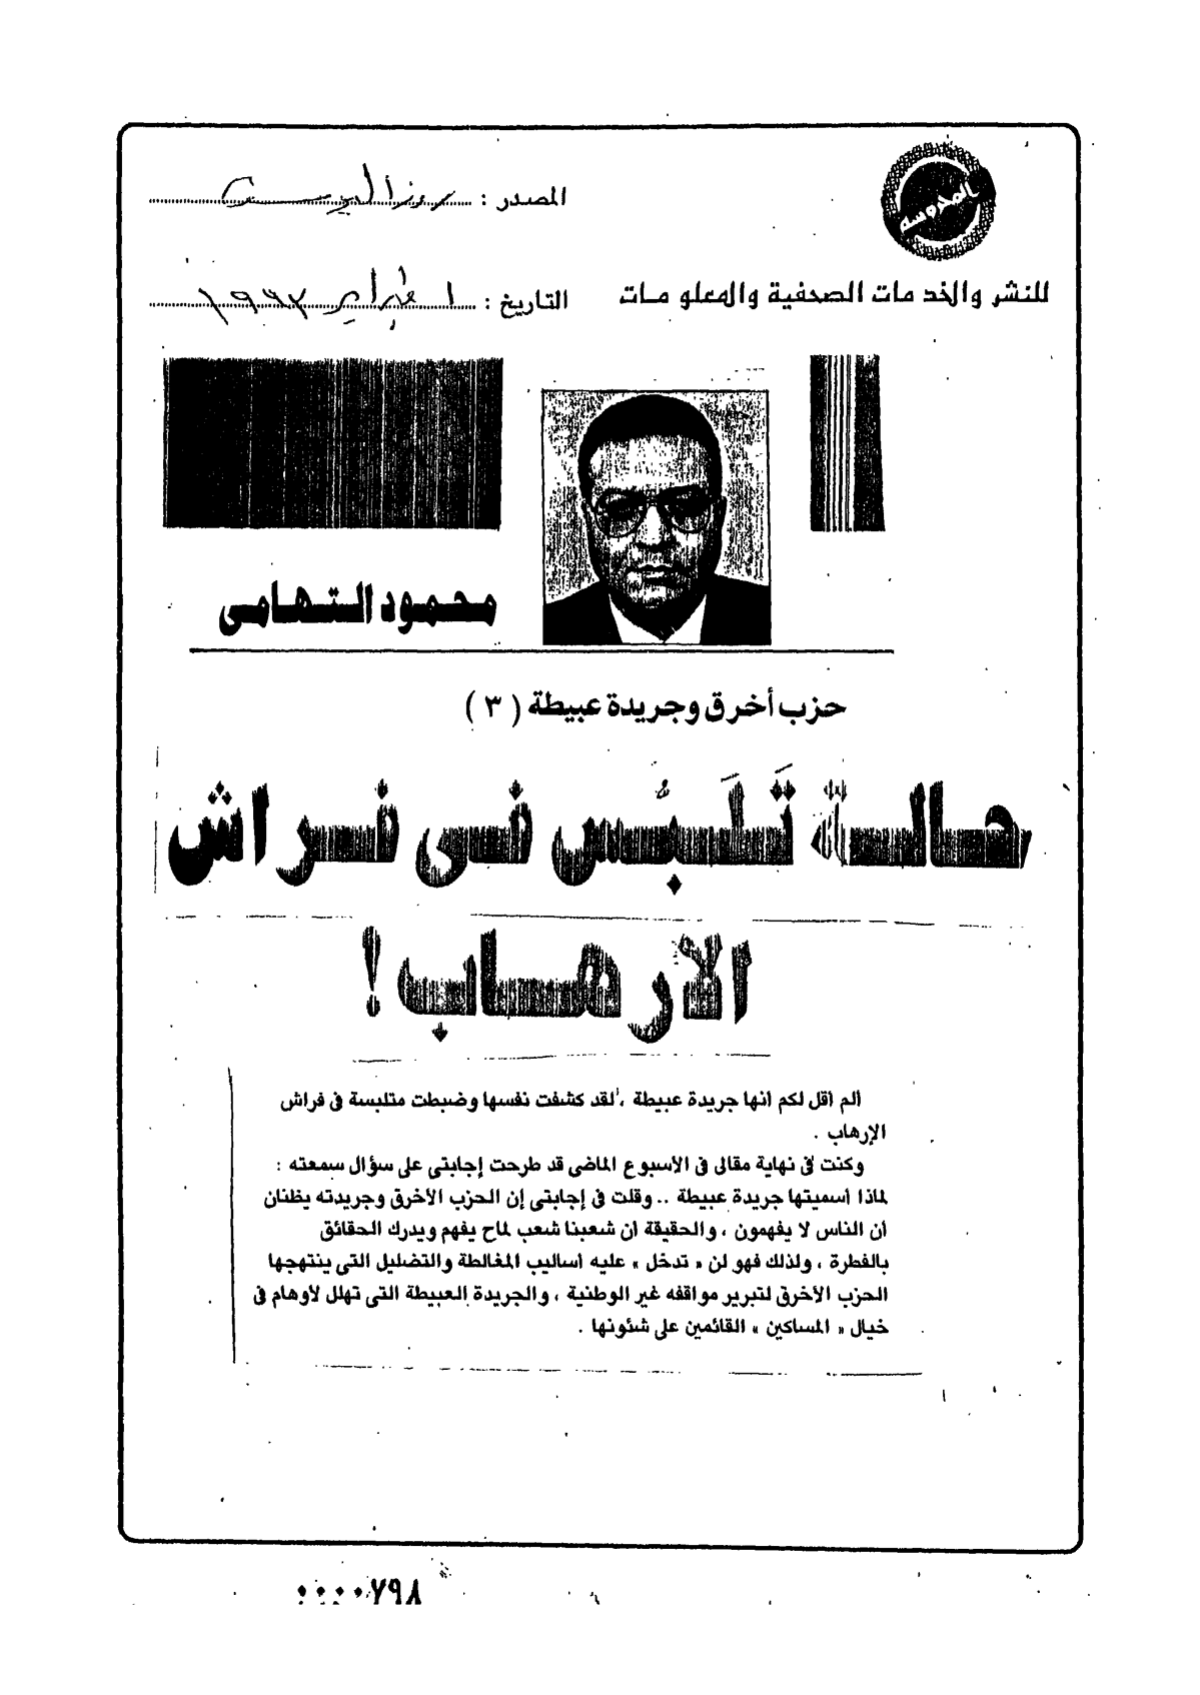 المحروسة
المصدر : روز اليوسف
للنشر والخدمات الصحفية والمعلومات
التاريخ : ١ فبراير ١٩٩٣
محمود التهامى
حزب أخرق وجريدة عبيطة ( ٣ )
حالة تَلَبُّس فى فراش
الأرهاب !
ألم أقل لكم أنها جريدة عبيطة ، لقد كشفت نفسها وضبطت متلبسة فى فراش
الإرهاب .
وكنت فى نهاية مقالى فى الأسبوع الماضى قد طرحت إجابتى على سؤال سمعته :
لماذا أسميتها جريدة عبيطة .. وقلت فى إجابتى إن الحزب الأخرق وجريدته يظنان
أن الناس لا يفهمون ، والحقيقة أن شعبنا شعب لماح يفهم ويدرك الحقائق
بالفطرة ، ولذلك فهو لن « تدخل » عليه أساليب المغالطة والتضليل التى ينتهجها
الحزب الأخرق لتبرير مواقفه غير الوطنية ، والجريدة العبيطة التى تهلل لأوهام فى
خيال « المساكين » القائمين على شئونها .
٠٠٠٠٧٩٨